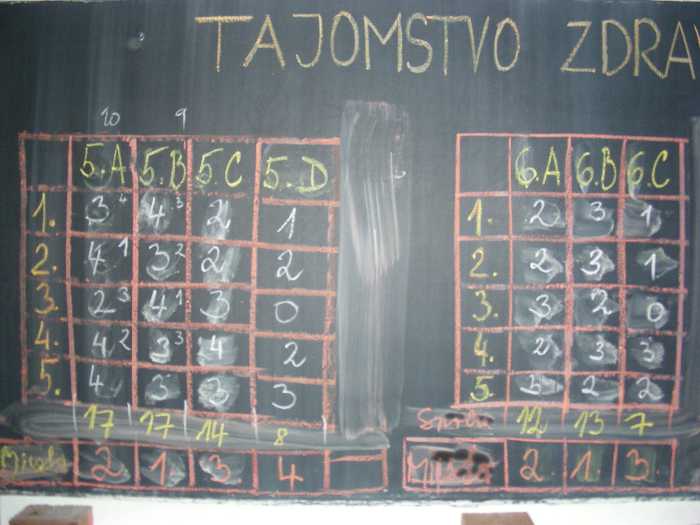 TAJOMSTVO ZDRAV
10 9
5.A 5.B 5.C 5.D 6.A 6.B 6.C
1. 3 4 4 3 2 1 1. 2 3 1
2. 4 1 3 2 2 2 2. 2 3 1
3. 2 3 4 1 3 0 3. 3 2 0
4. 4 2 3 3 4 2 4. 2 3 3
5. 4 3 3 3 5. 3 2 2
17 17 14 8 12 13 7
2 1 3 4 2. 1. 3.